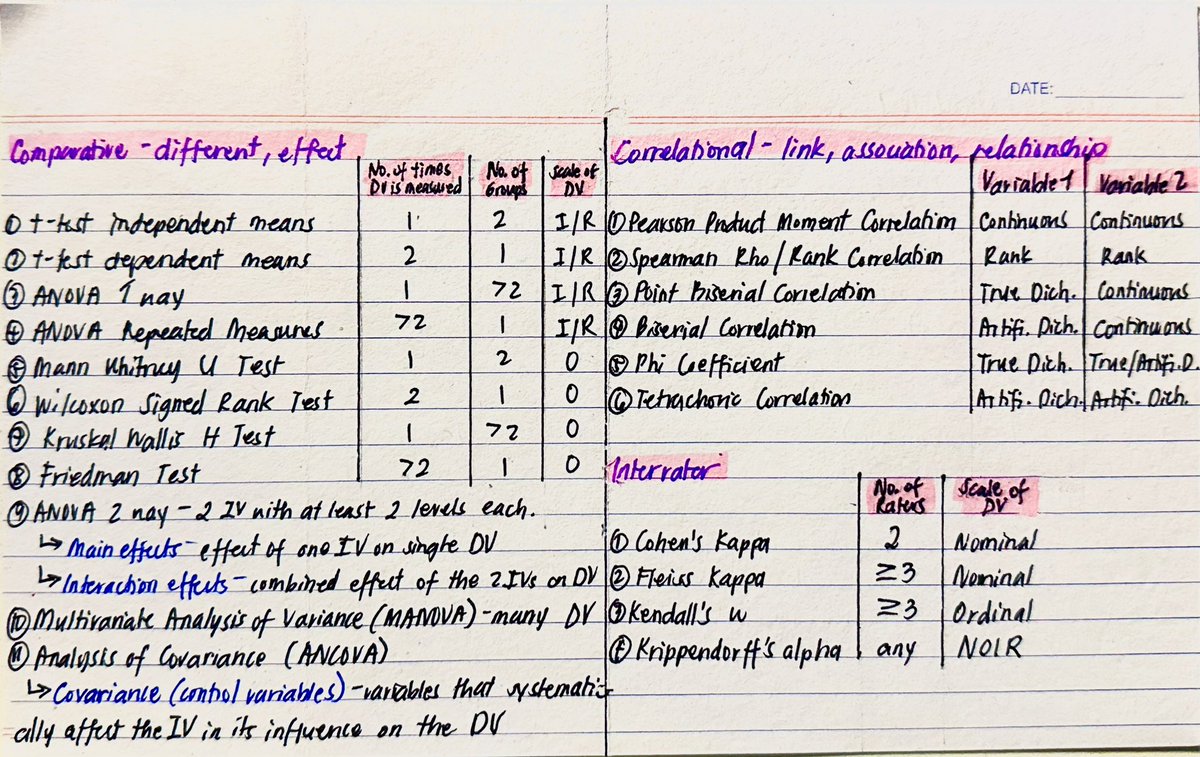 DATE:
Comparative - different, effect
No. of times DV is measured | No. of Groups | Scale of DV
① t-test independent means | 1 | 2 | I/R
② t-test dependent means | 2 | 1 | I/R
③ ANOVA 1 way | 1 | >2 | I/R
④ ANOVA Repeated Measures | >2 | 1 | I/R
⑤ Mann Whitney U Test | 1 | 2 | O
⑥ Wilcoxon Signed Rank Test | 2 | 1 | O
⑦ Kruskal Wallis H Test | 1 | >2 | O
⑧ Friedman Test | >2 | 1 | O
⑨ ANOVA 2 way - 2 IV with at least 2 levels each.
↳ Main effects - effect of one IV on single DV
↳ Interaction effects - combined effect of the 2 IVs on DV
⑩ Multivariate Analysis of Variance (MANOVA) - many DV
⑪ Analysis of Covariance (ANCOVA)
↳ Covariance (control variables) - variables that systematic-
ally affect the IV in its influence on the DV
Correlational - link, association, relationship
Variable 1 | Variable 2
① Pearson Product Moment Correlation | Continuous | Continuous
② Spearman Rho/Rank Correlation | Rank | Rank
③ Point Biserial Correlation | True Dich. | Continuous
④ Biserial Correlation | Artifi. Dich. | Continuous
⑤ Phi Coefficient | True Dich. | True/Artifi. D.
⑥ Tetrachoric Correlation | Artifi. Dich. | Artifi. Dich.
Interrater
No. of Raters | Scale of DV
① Cohen's Kappa | 2 | Nominal
② Fleiss Kappa | ≥3 | Nominal
③ Kendall's w | ≥3 | Ordinal
④ Krippendorff's alpha | any | NOIR